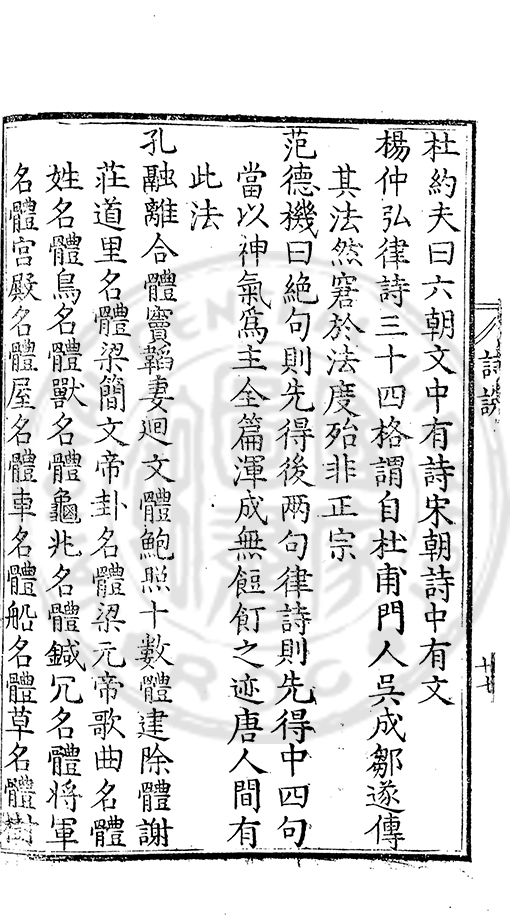 杜約夫曰六朝文中有詩宋朝詩中有文
楊仲弘律詩三十四格謂自杜甫門人吳成鄒遂傳
其法然窘於法度殆非正宗
范德機曰絕句則先得後兩句律詩則先得中四句
當以神氣爲主全篇渾成無餖飣之迹唐人間有
此法
孔融離合體竇韜妻迴文體鮑照十數體建除體謝
莊道里名體梁簡文帝卦名體梁元帝歌曲名體
姓名體鳥名體獸名體龜兆名體鍼冗名體將軍
名體宮殿名體屋名體車名體船名體草名體樹
廿七